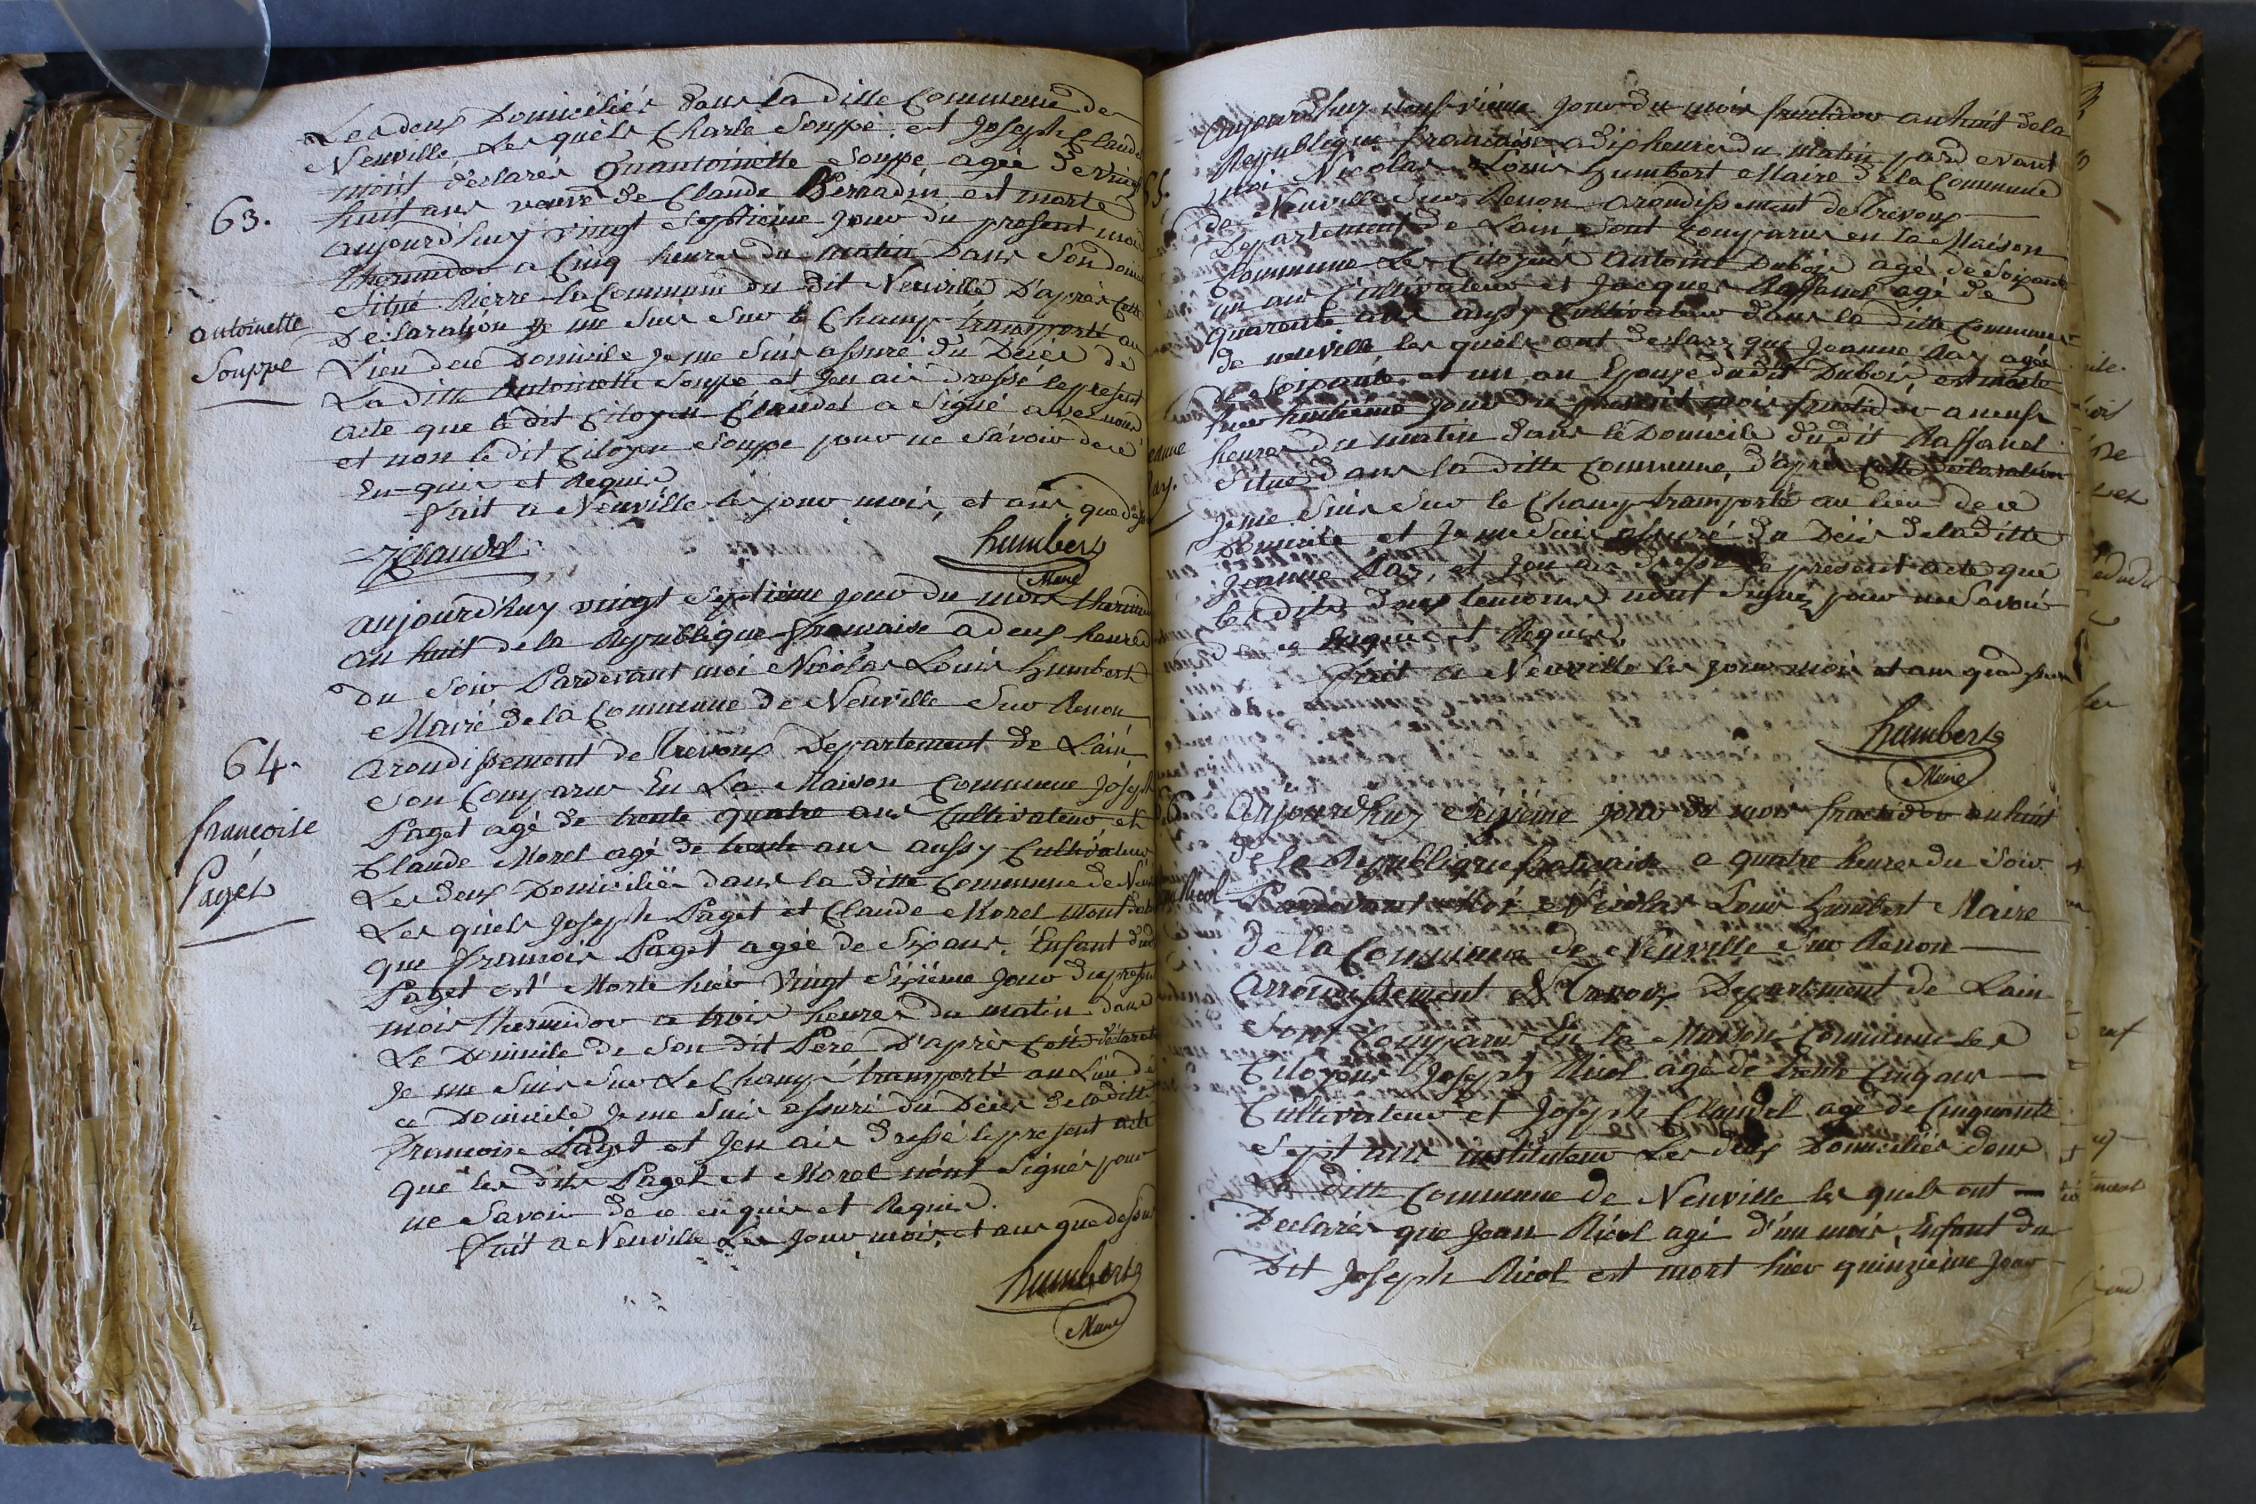 Les deux Domiciliés dans la ditte Commune de
Neuville Les quels Charle Souppe et Joseph Claudel
mont déclarés Quantoinette Souppe agée de vingt
huit ans veuve de Claude Bernadin est morte
aujourd'huy vingt Septième jour du present mois
thermidor a Cinq heures du matin Dans Son domicile
Situé Rierre la Commune du dit Neuville D'après Cette
Declaration je me Suis Sur le Champ transporté au
Lieu de ce Domicile Je me Suis assuré du Décés de
La ditte Antoinette Souppe et Jen ais dressé le present
acte que le dit Citoyen Claudel a Signé avec nous
et non le dit Citoyen Souppe pour ne Savoir de ce
En-quis et Requis
fait a Neuville les jour mois, et ans que dessus
63.
antoinette
Souppe
JClaudel
humbert
Maire
aujourd'huy vingt Septième jour du mois thermidor
an huit de la Republique francaise a deux heures
du Soir Pardevant moi Nicolas Louis humbert
Maire de la Commune de Neuville Sur Renon
arondissement de Trevoux Departement de Lain
Son Comparus En La Maison Commune Joseph
Paget agé de trente quatre ans Cultivateur et
Claude Morel agé de trente ans aussy Cultivateur
Les deux Domiciliés dans la ditte Commune de
Les quels Joseph Paget et Claude Morel mont
que francois Paget agée de Six ans, Enfant dud
Paget est Morte hier Vingt Sixième jour du present
mois thermidor a trois heures du matin dans
Le Domicile de Son dit Pere D'après Cette déclaration
Je me Suis Sur Le Champ transporté au Lieu de
ce Domicile Je me Suis assuré du Décés de la ditte
francoise Paget et Jen ais dressé le present acte
que les dits Paget et Morel nont Signés pour
ne Savoir de ce enquis et Requis.
fait a Neuville Les jour mois et ans que dessus
64.
francoise
Paget
humbert
Maire
Aujourd'huy neufvième jour du mois fructidor an huit de la
Republique francaise a dix heures du matin pardevant
moi Nicolas Louis Humbert Maire de la Commune
de Neuville Sur Renon arondissement de Trevoux
Departement de Lain, Sont Comparus en la Maison
Commune Les Citoyens Antoine Dubois agé de Soixante
un ans Cultivateur et Jacques Raffanel agé de
quarante ans aussy Cultivateur dans la ditte Commune
de neuville les quels ont declarz que Jeanne Ray agée
de Soixante et un an Epouze dudit Dubois est morte
hier huitième jour du present mois fructidor a neuf
heures du matin dans le Domicile du dit Raffanel
Situé dans la ditte Commune, d'après Cette declaration
je me Suis Sur le Champ transporté au lieu de ce
Domicile et Je me Suis assuré du Décés de la ditte
Jeanne Ray, et Jen ais dressé le present acte que
les dits deux temoins nont Signez pour ne Savoir
de ce enquis et Requis,
fait a Neuville les jour mois et ans que dessus
humbert
Maire
Aujourd'huy Séixième jour du mois fructidor an huit
de la Republique francaise a quatre heures du Soir
Pardevant Moi Nicolas Louis Humbert Maire
de la Commune de Neuville Sur Renon
Arrondissement de Trevoux Departement de Lain
Sont Comparus En la Maison Commune Les
Citoyens Joseph Nicol agé de trente Cinq ans
Cultivateur et Joseph Claudel agé de Cinquante
Sept ans instituteur Les deux Domiciliés dans
la ditte Commune de Neuville les quels ont
Declarés que Jean Nicol agé d'un mois, Enfant du
Dit Joseph Nicol est mort hier quinzième jour